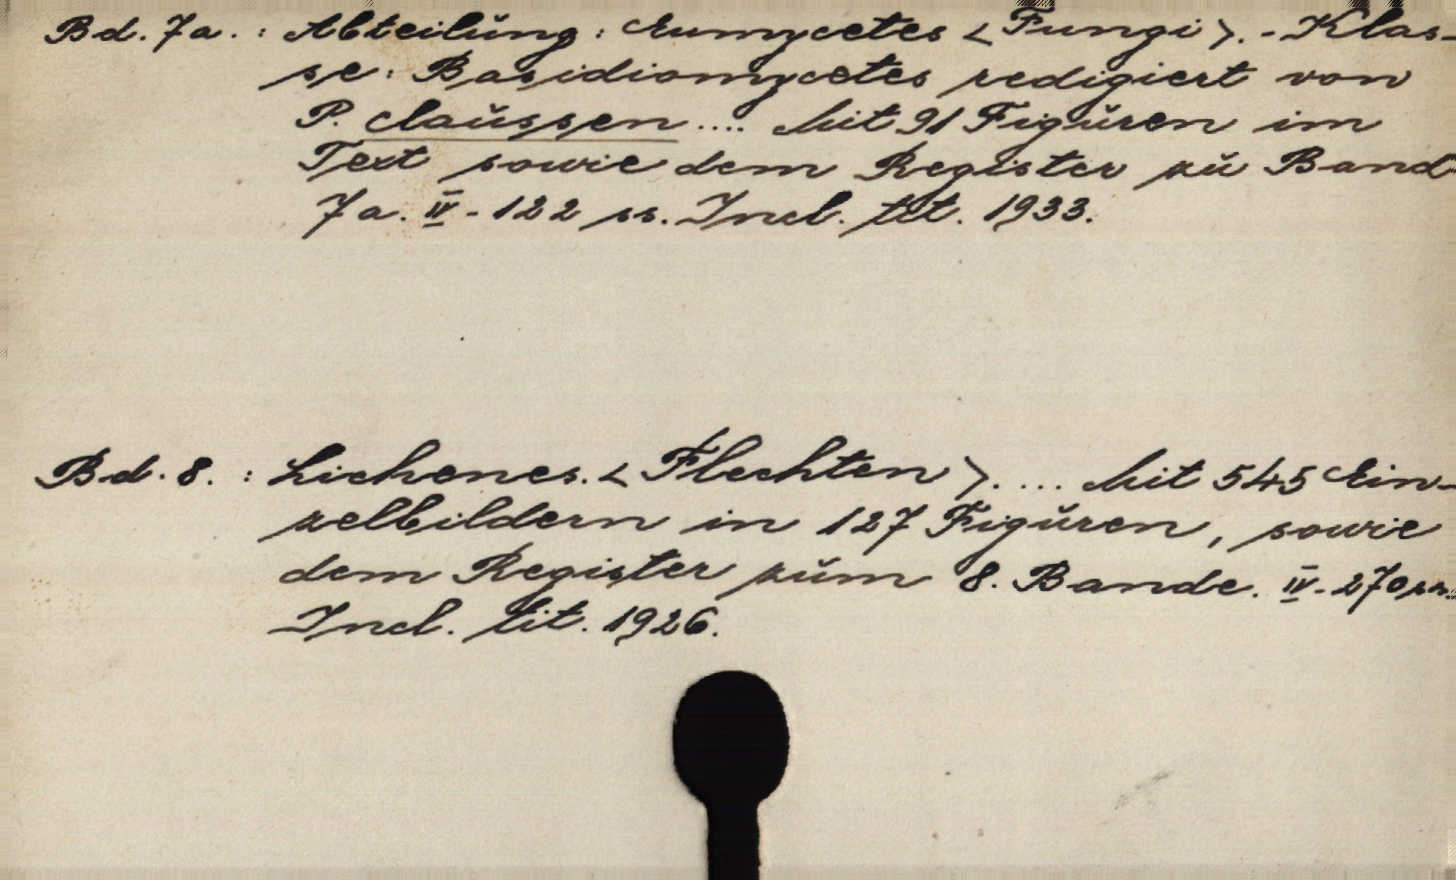 Bd. 7a. : Abteilung : Eumycetes <Fungi>. - Klas-
se : Basidiomycetes redigiert von
P. Claussen .... Mit 91 Figuren im
Text sowie dem Register zu Band
7a. IV - 122 ss. Incl. tit. 1933.
Bd. 8. : Lichenes. <Flechten>. ... Mit 545 Ein-
zelbildern in 127 Figuren, sowie
dem Register zum 8. Bande. IV - 270 ss.
Incl. tit. 1926.